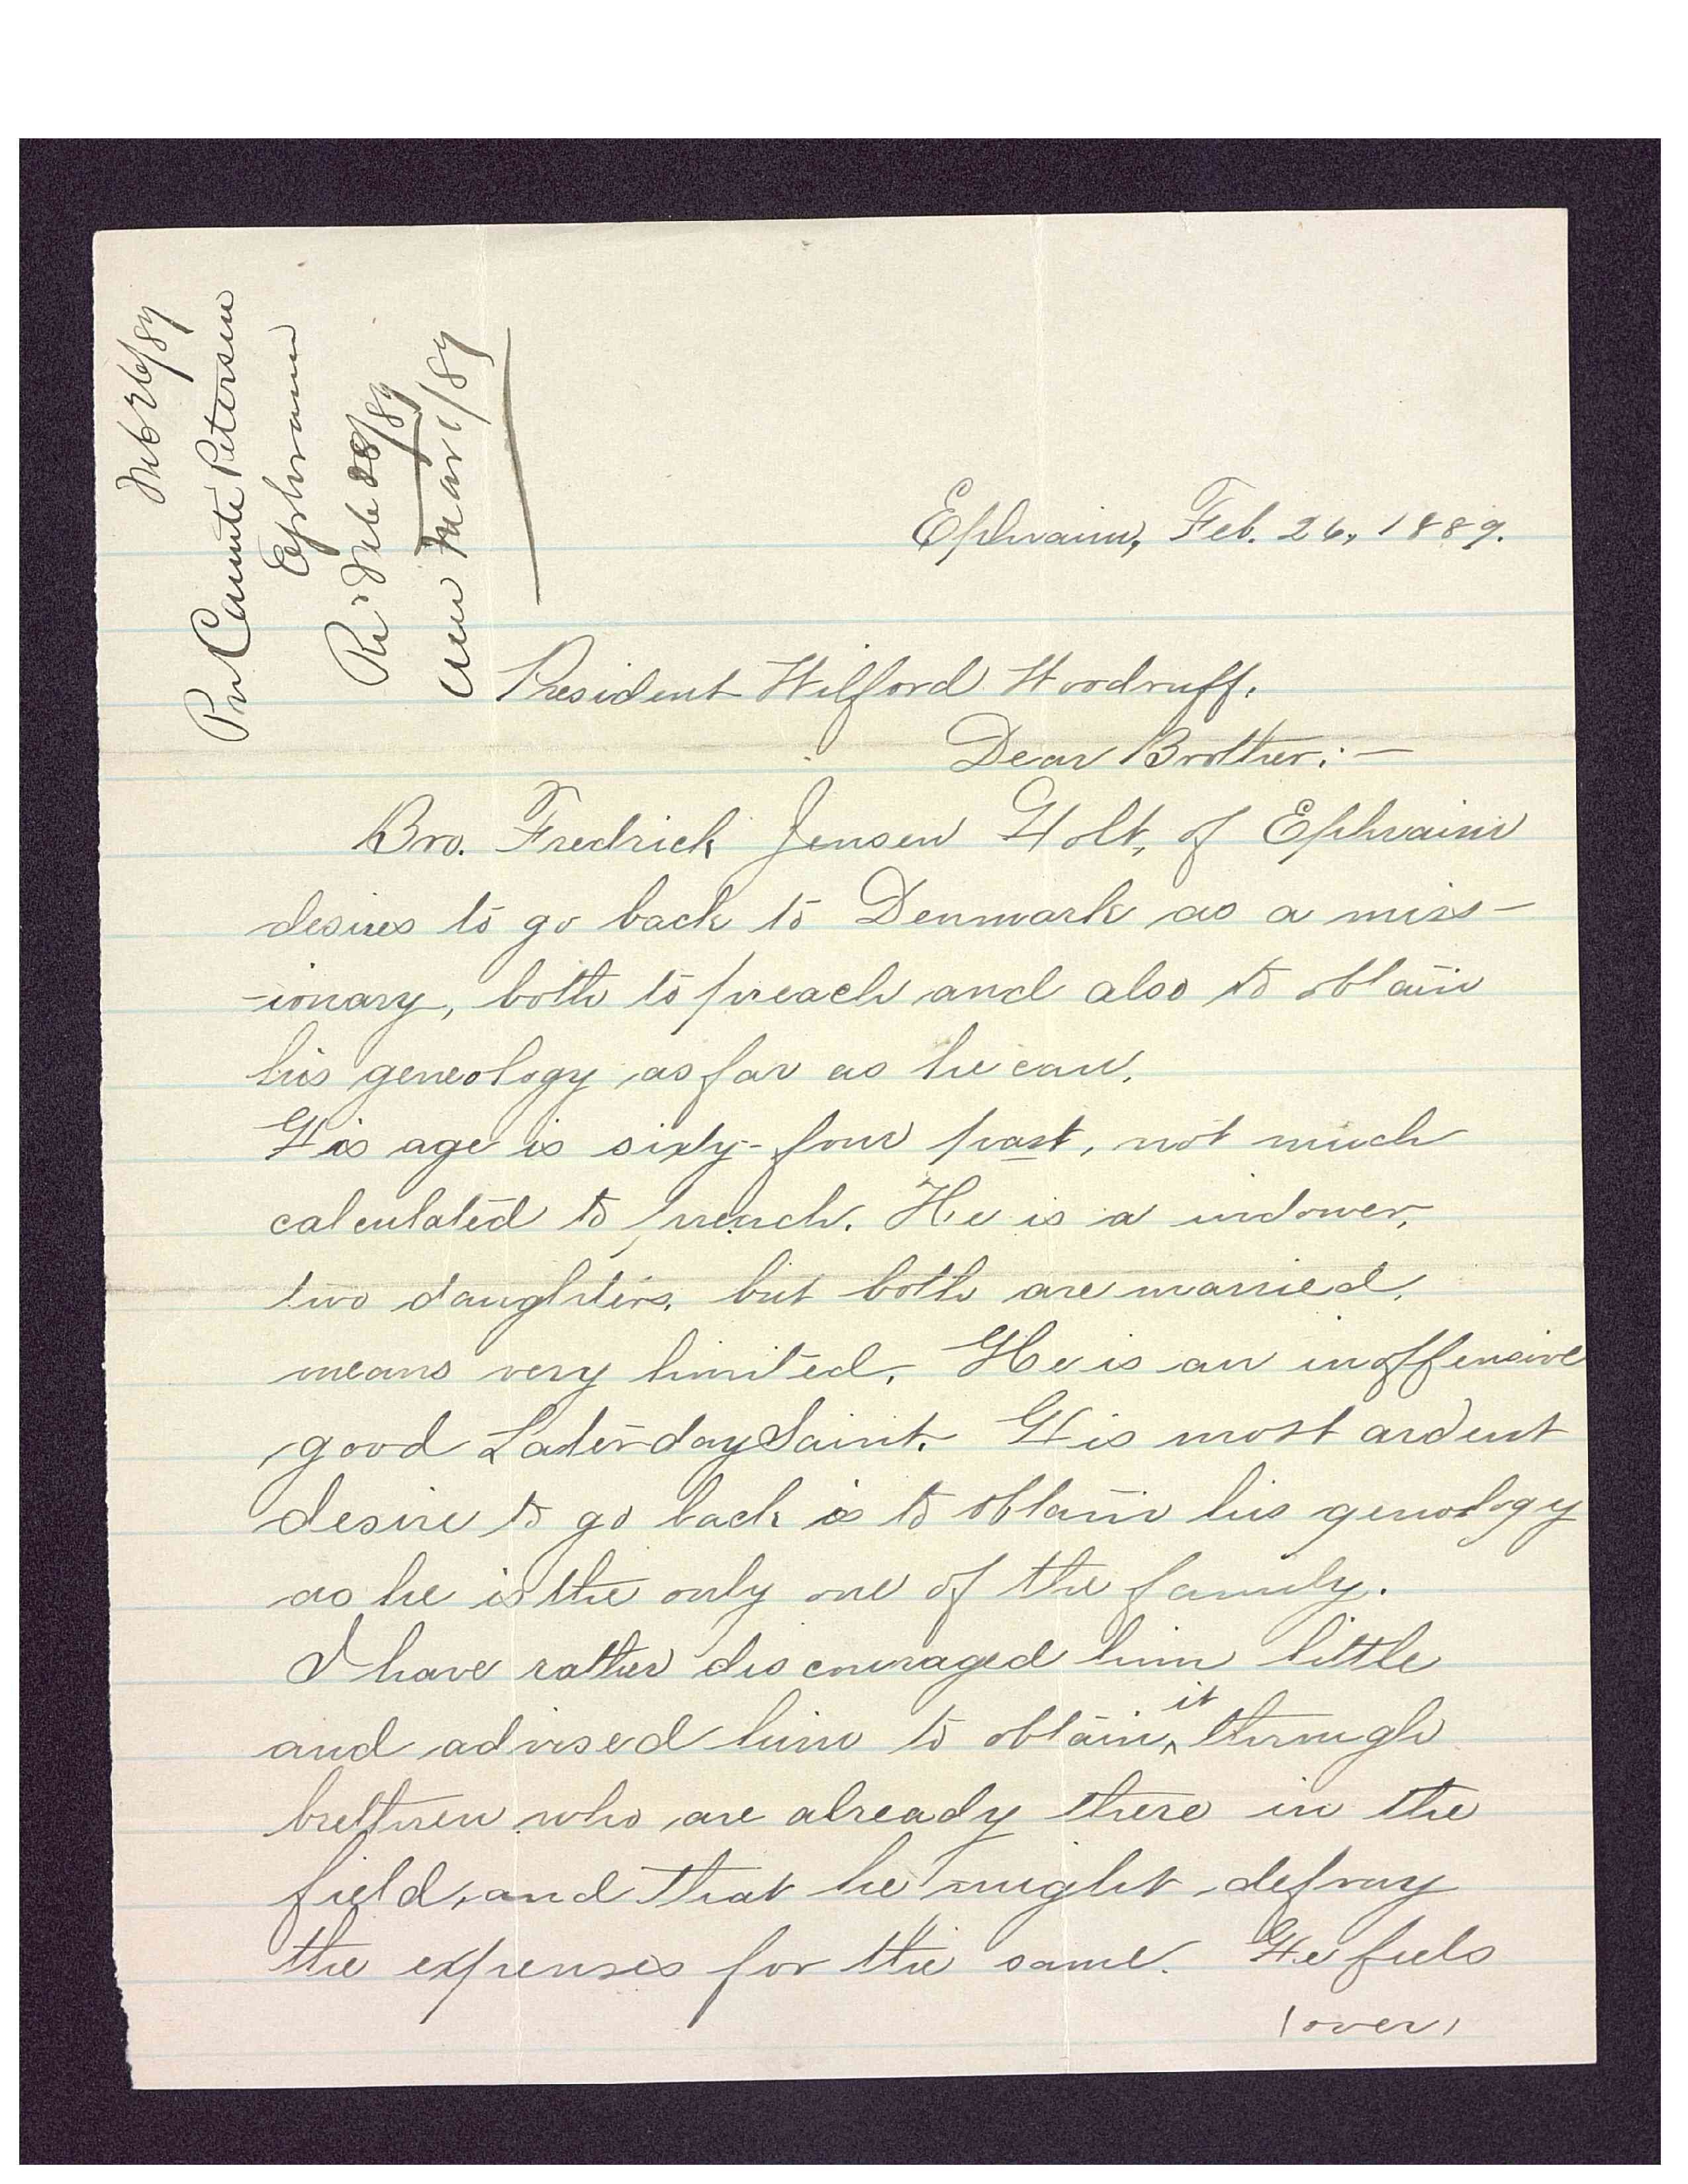 Feb 26/89
Pres Canute Petersen
Ephraim
Rec Feb 28/89
Ans Mar 1/89
Ephraim, Feb. 26, 1889.
President Wilford Woodruff.
Dear Brother:—
Bro. Fredrick Jensen Holt, of Ephraim
desires to go back to Denmark as a miss-
-ionary, both to preach and also to obtain
his geneology as far as he can.
His age is sixty-four past, not much
calculated to preach. He is a widower,
two daughters, but both are married,
means very limited. He is an inoffensive
good Laterday Saint. His most ardent
desire to go back is to obtain his genology
as he is the only one of the family.
I have rather discouraged him little
and advised him to obtain ^it through
brethren who are already there in the
field, and that he might defray
the expenses for the same. He feels
(over)